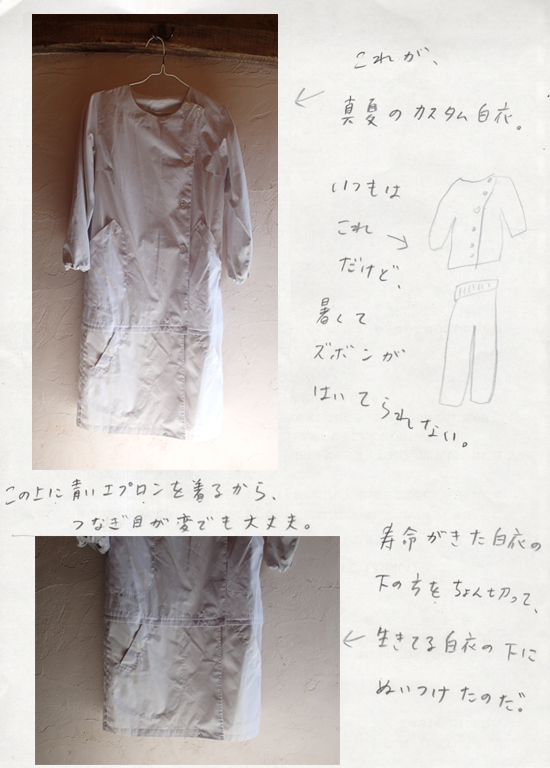 これが、
真夏のカスタム白衣。
いつもは
これ
だけど、
暑くて
ズボンが
はいてられない。
この上に青いエプロンを着るから、
つなぎ目が変でも大丈夫。
寿命がきた白衣の
下の方をちょん切って、
生きてる白衣の下に
ぬいつけたのだ。